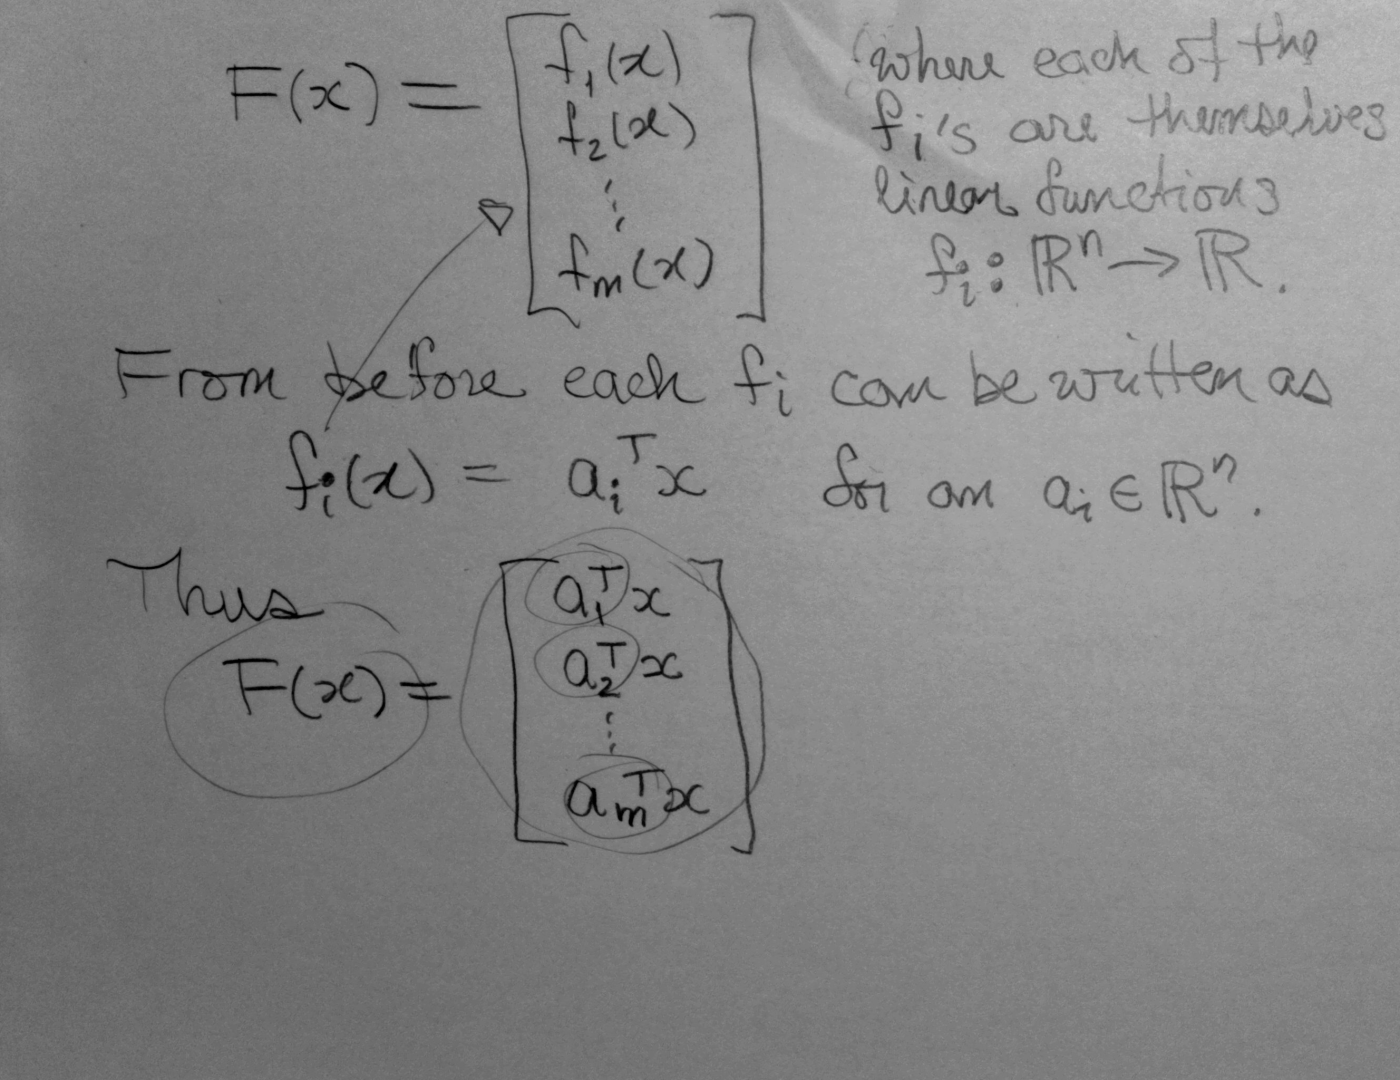 F(x) = [ f₁(x)
f₂(x)
⋮
fₘ(x) ]
where each of the
fᵢ's are themselves
linear functions
fᵢ : ℝⁿ → ℝ.
From before each fᵢ can be written as
fᵢ(x) = aᵢᵀx for an aᵢ ∈ ℝⁿ.
Thus
F(x) = [ a₁ᵀx
a₂ᵀx
⋮
aₘᵀx ]